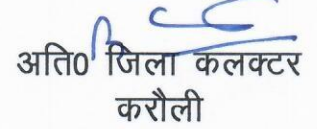 अति0 जिला कलक्टर
करौली